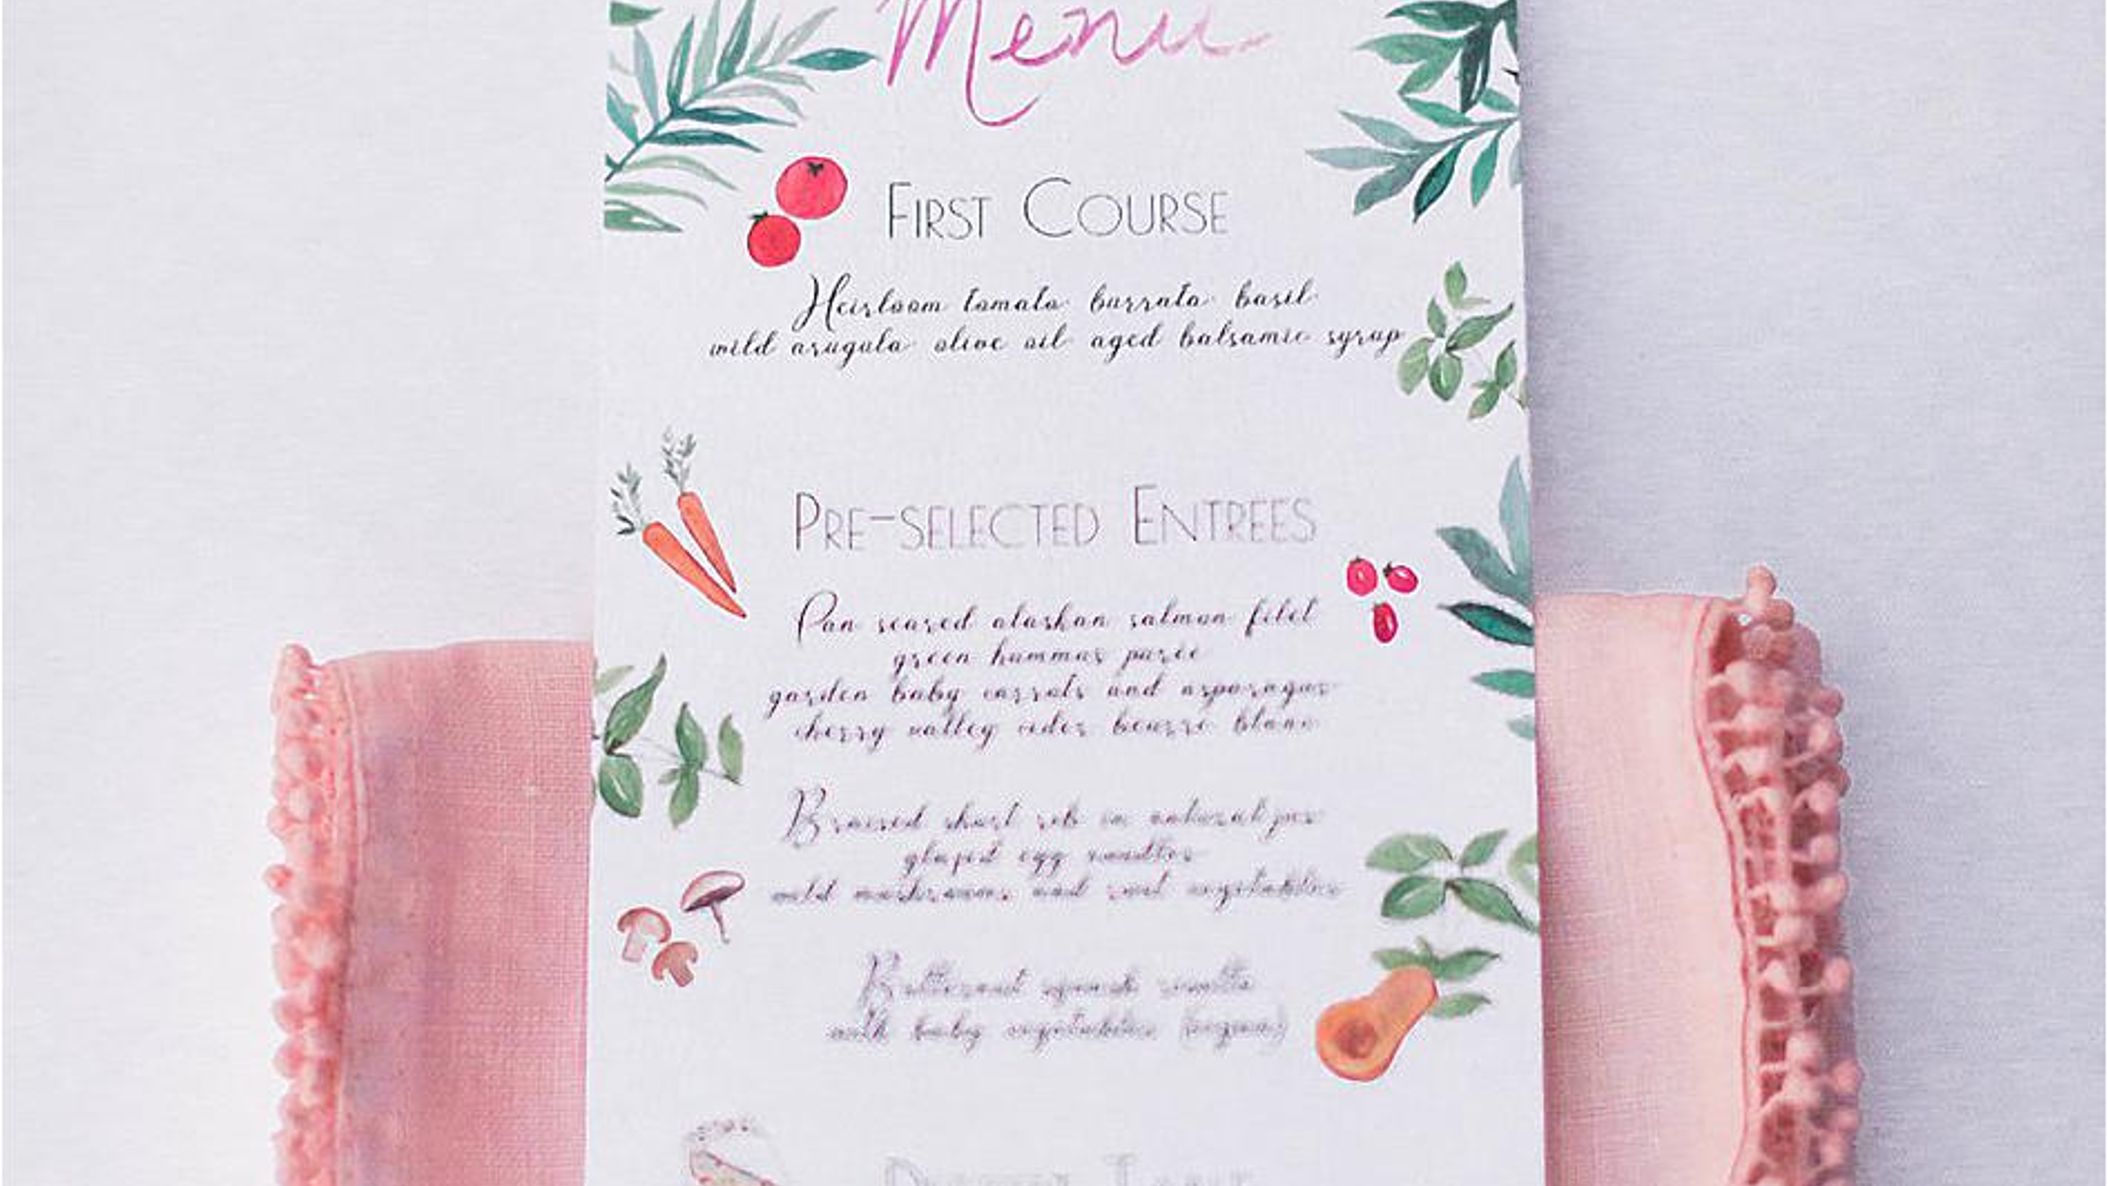 Menu
First Course
Heirloom tomato burrata basil
wild arugula olive oil aged balsamic syrup
Pre-selected Entrees
Pan seared alaskan salmon filet
green hummus purée
garden baby carrots and asparagus
cherry valley cider beurre blanc
Braised short rib in natural jus
glazed egg noodles
wild mushrooms and root vegetables
Butternut squash
with baby vegetables (vegan)